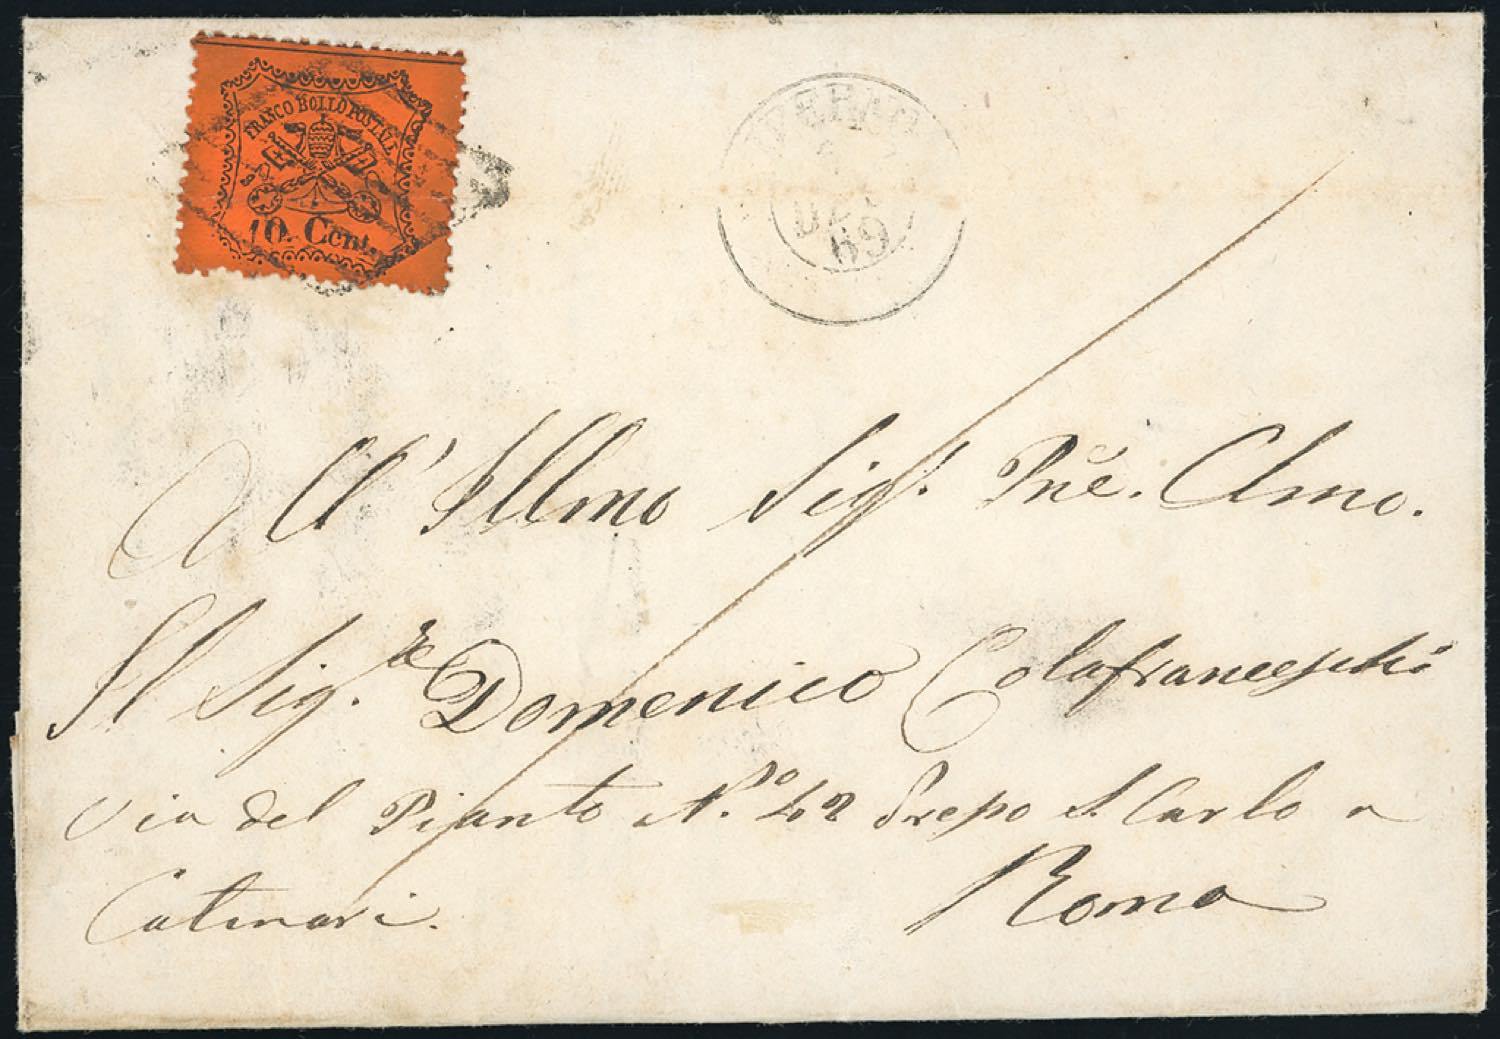 FRANCO BOLLO POSTALE
10. Cent.
69
All' Illmo Sig.r Pñe. Clmo.
Il Sig.re Domenico Colafranceschi
Via del Pianto N.o 42 Prepo S. Carlo a
Catinari.
Roma